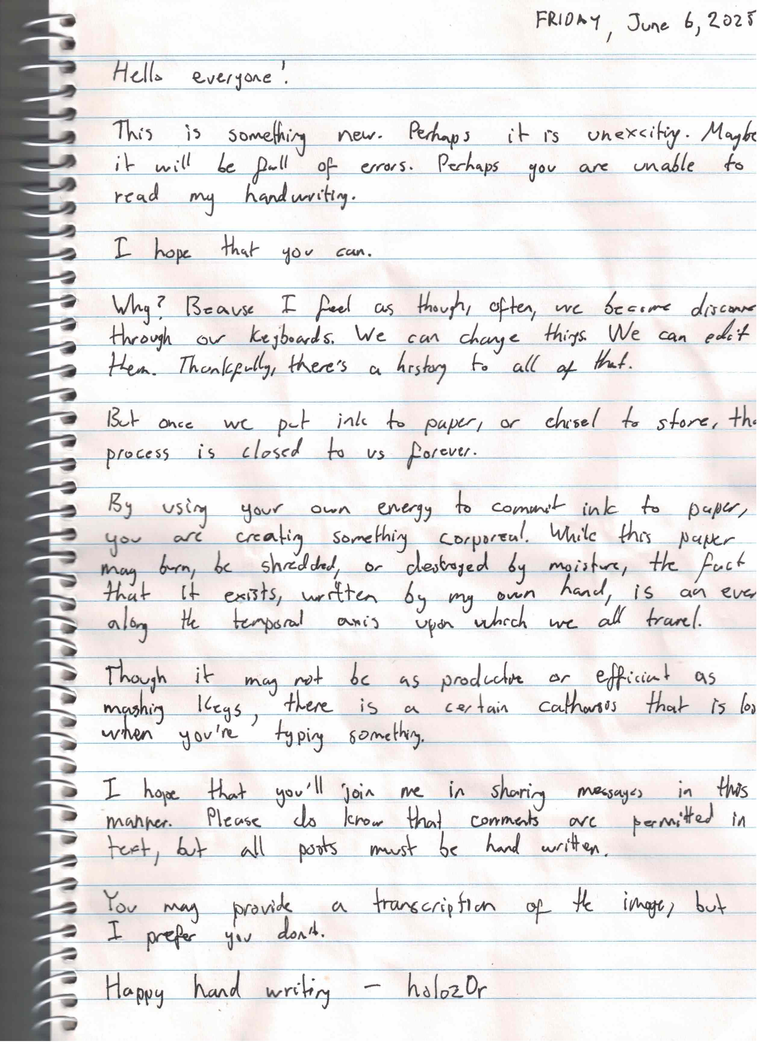 FRIDAY, June 6, 2025
Hello everyone!
This is something new. Perhaps it is unexciting. Maybe
it will be full of errors. Perhaps you are unable to
read my handwriting.
I hope that you can.
Why? Beause I feel as though, often, we become disconne
through our keyboards. We can change things. We can edit
them. Thankfully, there's a history to all of that.
But once we put ink to paper, or chisel to stone, the
process is closed to us forever.
By using your own energy to commit ink to paper,
you are creating something corporeal. While this paper
may burn, be shredded, or destroyed by moisture, the fact
that it exists, written by my own hand, is an even
along the temporal axis upon which we all travel.
Though it may not be as productive or efficient as
mashing keys, there is a certain catharsis that is los
when you're typing something.
I hope that you'll join me in sharing messages in this
manner. Please do know that comments are permitted in
text, but all posts must be hand written.
You may provide a transcription of the image, but
I prefer you don't.
Happy hand writing - holoz0r